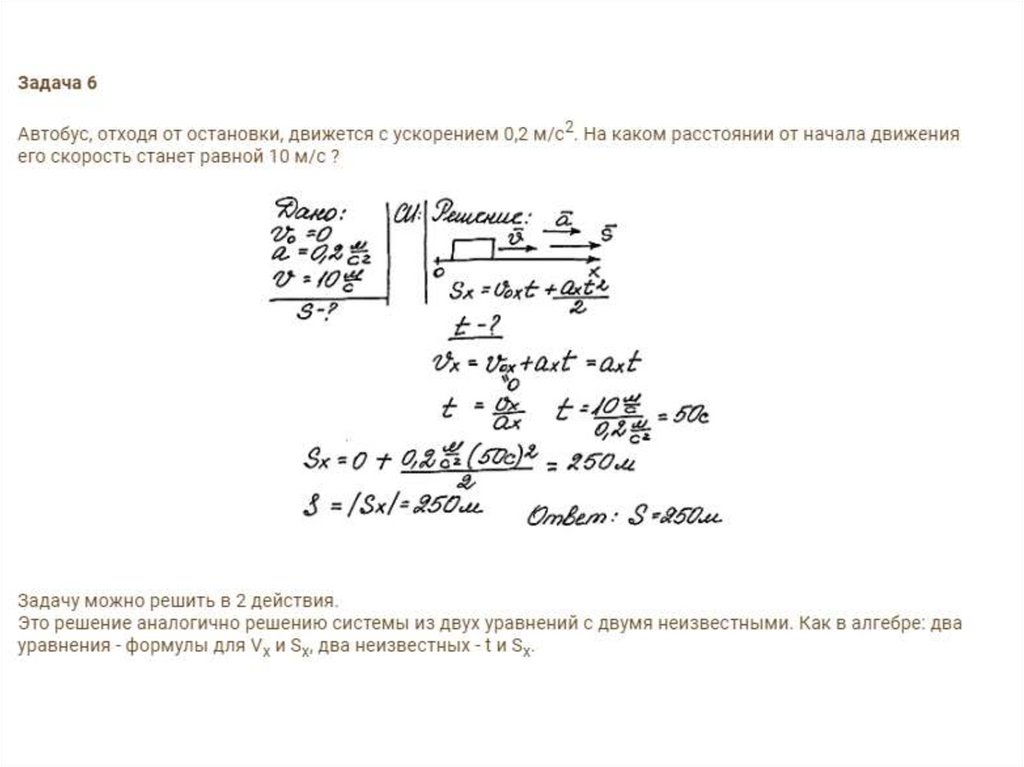 Задача 6
Автобус, отходя от остановки, движется с ускорением 0,2 м/с². На каком расстоянии от начала движения
его скорость станет равной 10 м/с ?
Дано: СИ: Решение: a̅
v₀ = 0 v̅ s̅
a = 0,2 м/с²
v = 10 м/с 0 x
s - ? Sx = v₀xt + axt²/2
t - ?
vx = v₀x + axt = axt
"0
t = vx/ax t = 10 м/с / 0,2 м/с² = 50с
Sx = 0 + 0,2 м/с² (50с)² / 2 = 250 м
S = |Sx| = 250 м Ответ: S = 250м
Задачу можно решить в 2 действия.
Это решение аналогично решению системы из двух уравнений с двумя неизвестными. Как в алгебре: два
уравнения - формулы для Vx и Sx, два неизвестных - t и Sx.